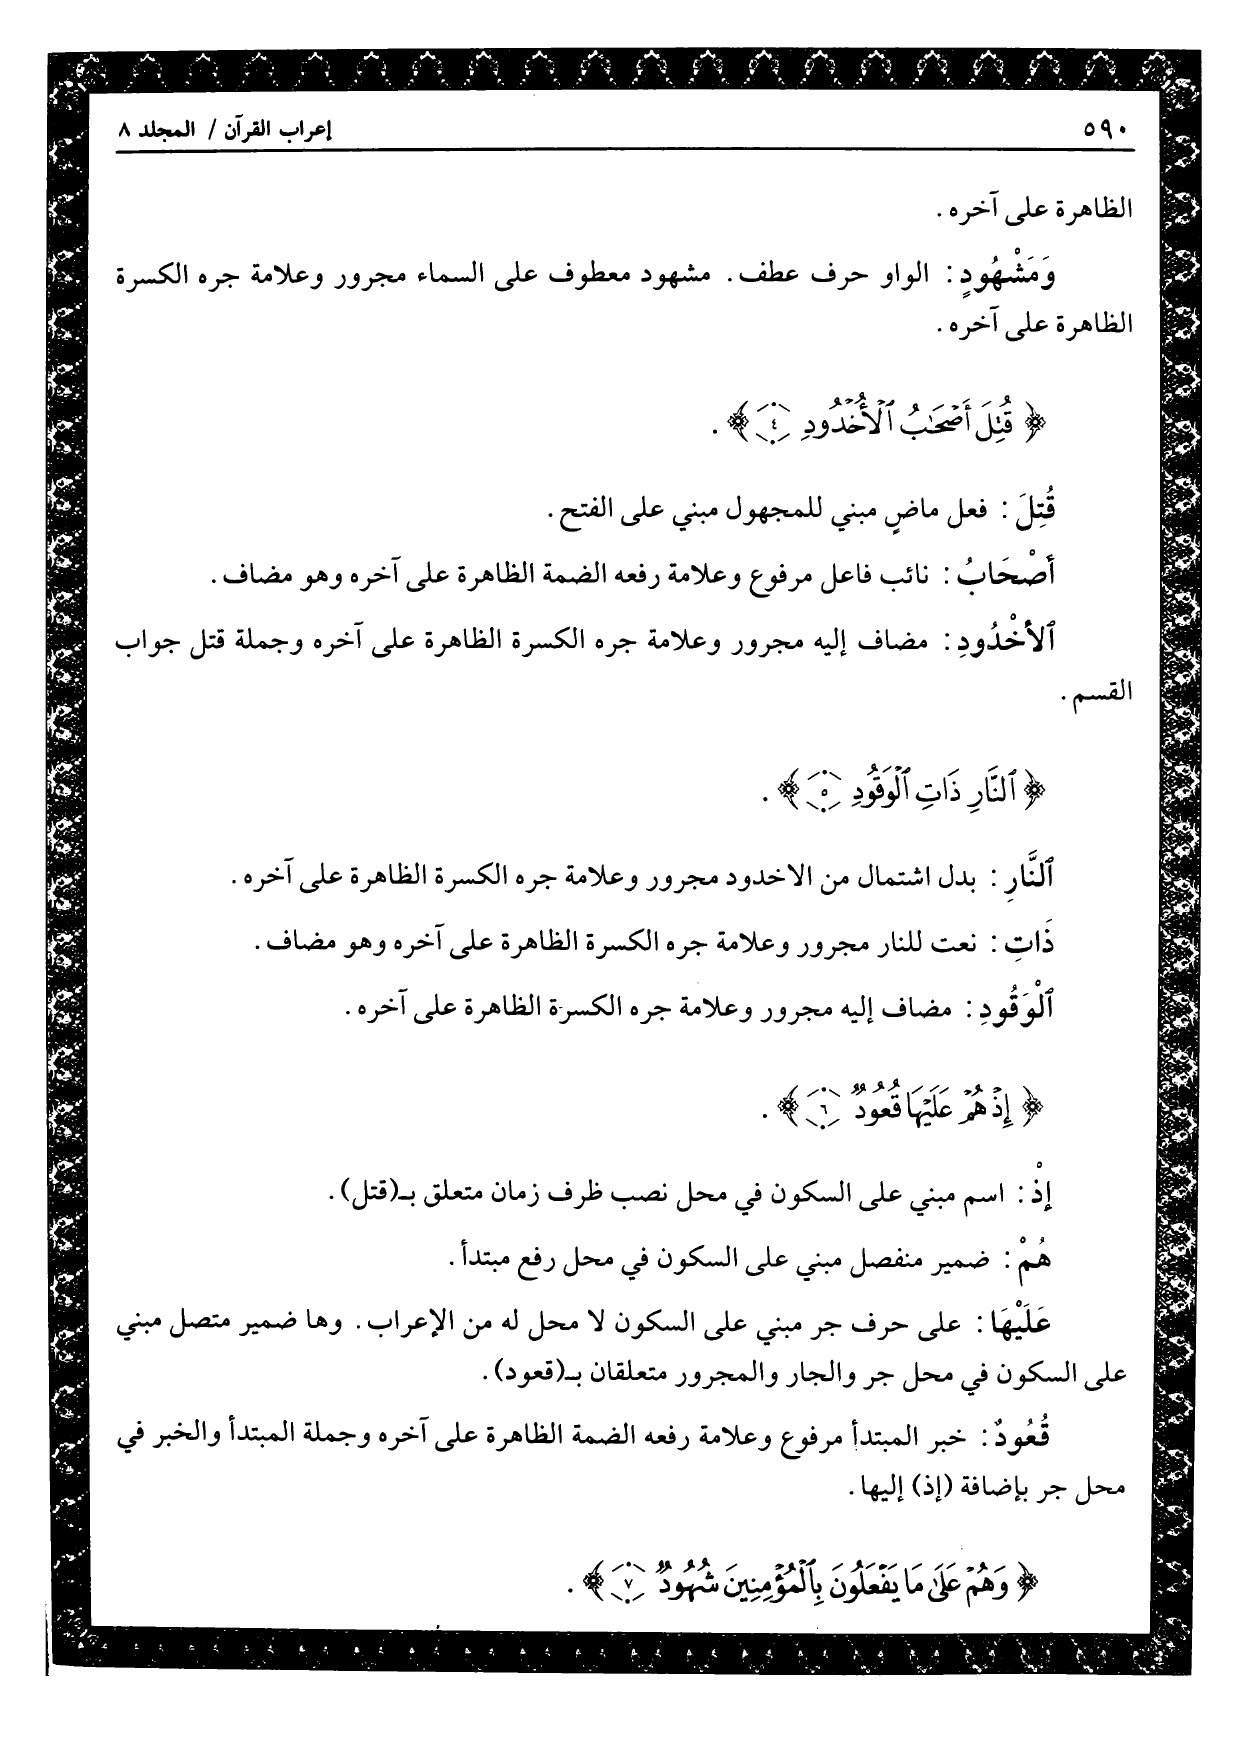 ٥٩٠ إعراب القرآن / المجلد ٨
الظاهرة على آخره.
وَمَشْهُودٍ: الواو حرف عطف. مشهود معطوف على السماء مجرور وعلامة جره الكسرة
الظاهرة على آخره.
﴿ قُتِلَ أَصْحَٰبُ ٱلْأُخْدُودِ ٤ ﴾.
قُتِلَ: فعل ماضٍ مبني للمجهول مبني على الفتح.
أَصْحَابُ: نائب فاعل مرفوع وعلامة رفعه الضمة الظاهرة على آخره وهو مضاف.
ٱلأُخْدُودِ: مضاف إليه مجرور وعلامة جره الكسرة الظاهرة على آخره وجملة قتل جواب
القسم.
﴿ ٱلنَّارِ ذَاتِ ٱلْوَقُودِ ٥ ﴾.
ٱلنَّارِ: بدل اشتمال من الاخدود مجرور وعلامة جره الكسرة الظاهرة على آخره.
ذَاتِ: نعت للنار مجرور وعلامة جره الكسرة الظاهرة على آخره وهو مضاف.
ٱلْوَقُودِ: مضاف إليه مجرور وعلامة جره الكسرة الظاهرة على آخره.
﴿ إِذْ هُمْ عَلَيْهَا قُعُودٌ ٦ ﴾.
إِذْ: اسم مبني على السكون في محل نصب ظرف زمان متعلق بـ(قتل).
هُمْ: ضمير منفصل مبني على السكون في محل رفع مبتدأ.
عَلَيْهَا: على حرف جر مبني على السكون لا محل له من الإعراب. وها ضمير متصل مبني
على السكون في محل جر والجار والمجرور متعلقان بـ(قعود).
قُعُودٌ: خبر المبتدأ مرفوع وعلامة رفعه الضمة الظاهرة على آخره وجملة المبتدأ والخبر في
محل جر بإضافة (إذ) إليها.
﴿ وَهُمْ عَلَىٰ مَا يَفْعَلُونَ بِٱلْمُؤْمِنِينَ شُهُودٌ ٧ ﴾.